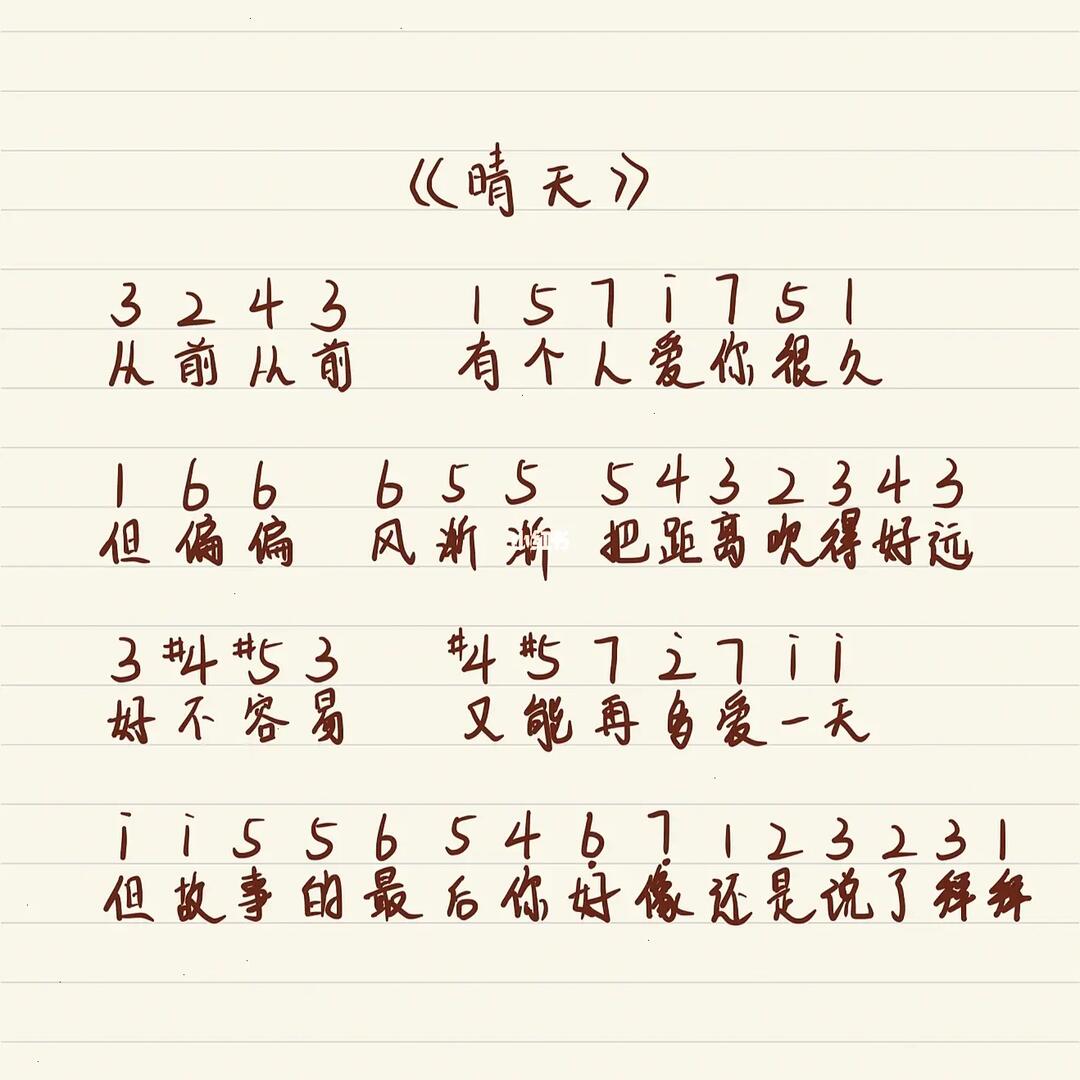 《晴天》
3 2 4 3 1 5 7 i 7 5 1
从前从前 有个人爱你很久
1 6 6 6 5 5 5 4 3 2 3 4 3
但偏偏 风渐渐 把距离吹得好远
小红书
3 #4 #5 3 #4 #5 7 2̇ 7 i i
好不容易 又能再多爱一天
i i 5 5 6 5 4 6̣ 7̣ 1 2 3 2 3 1
但故事的最后你好像还是说了拜拜